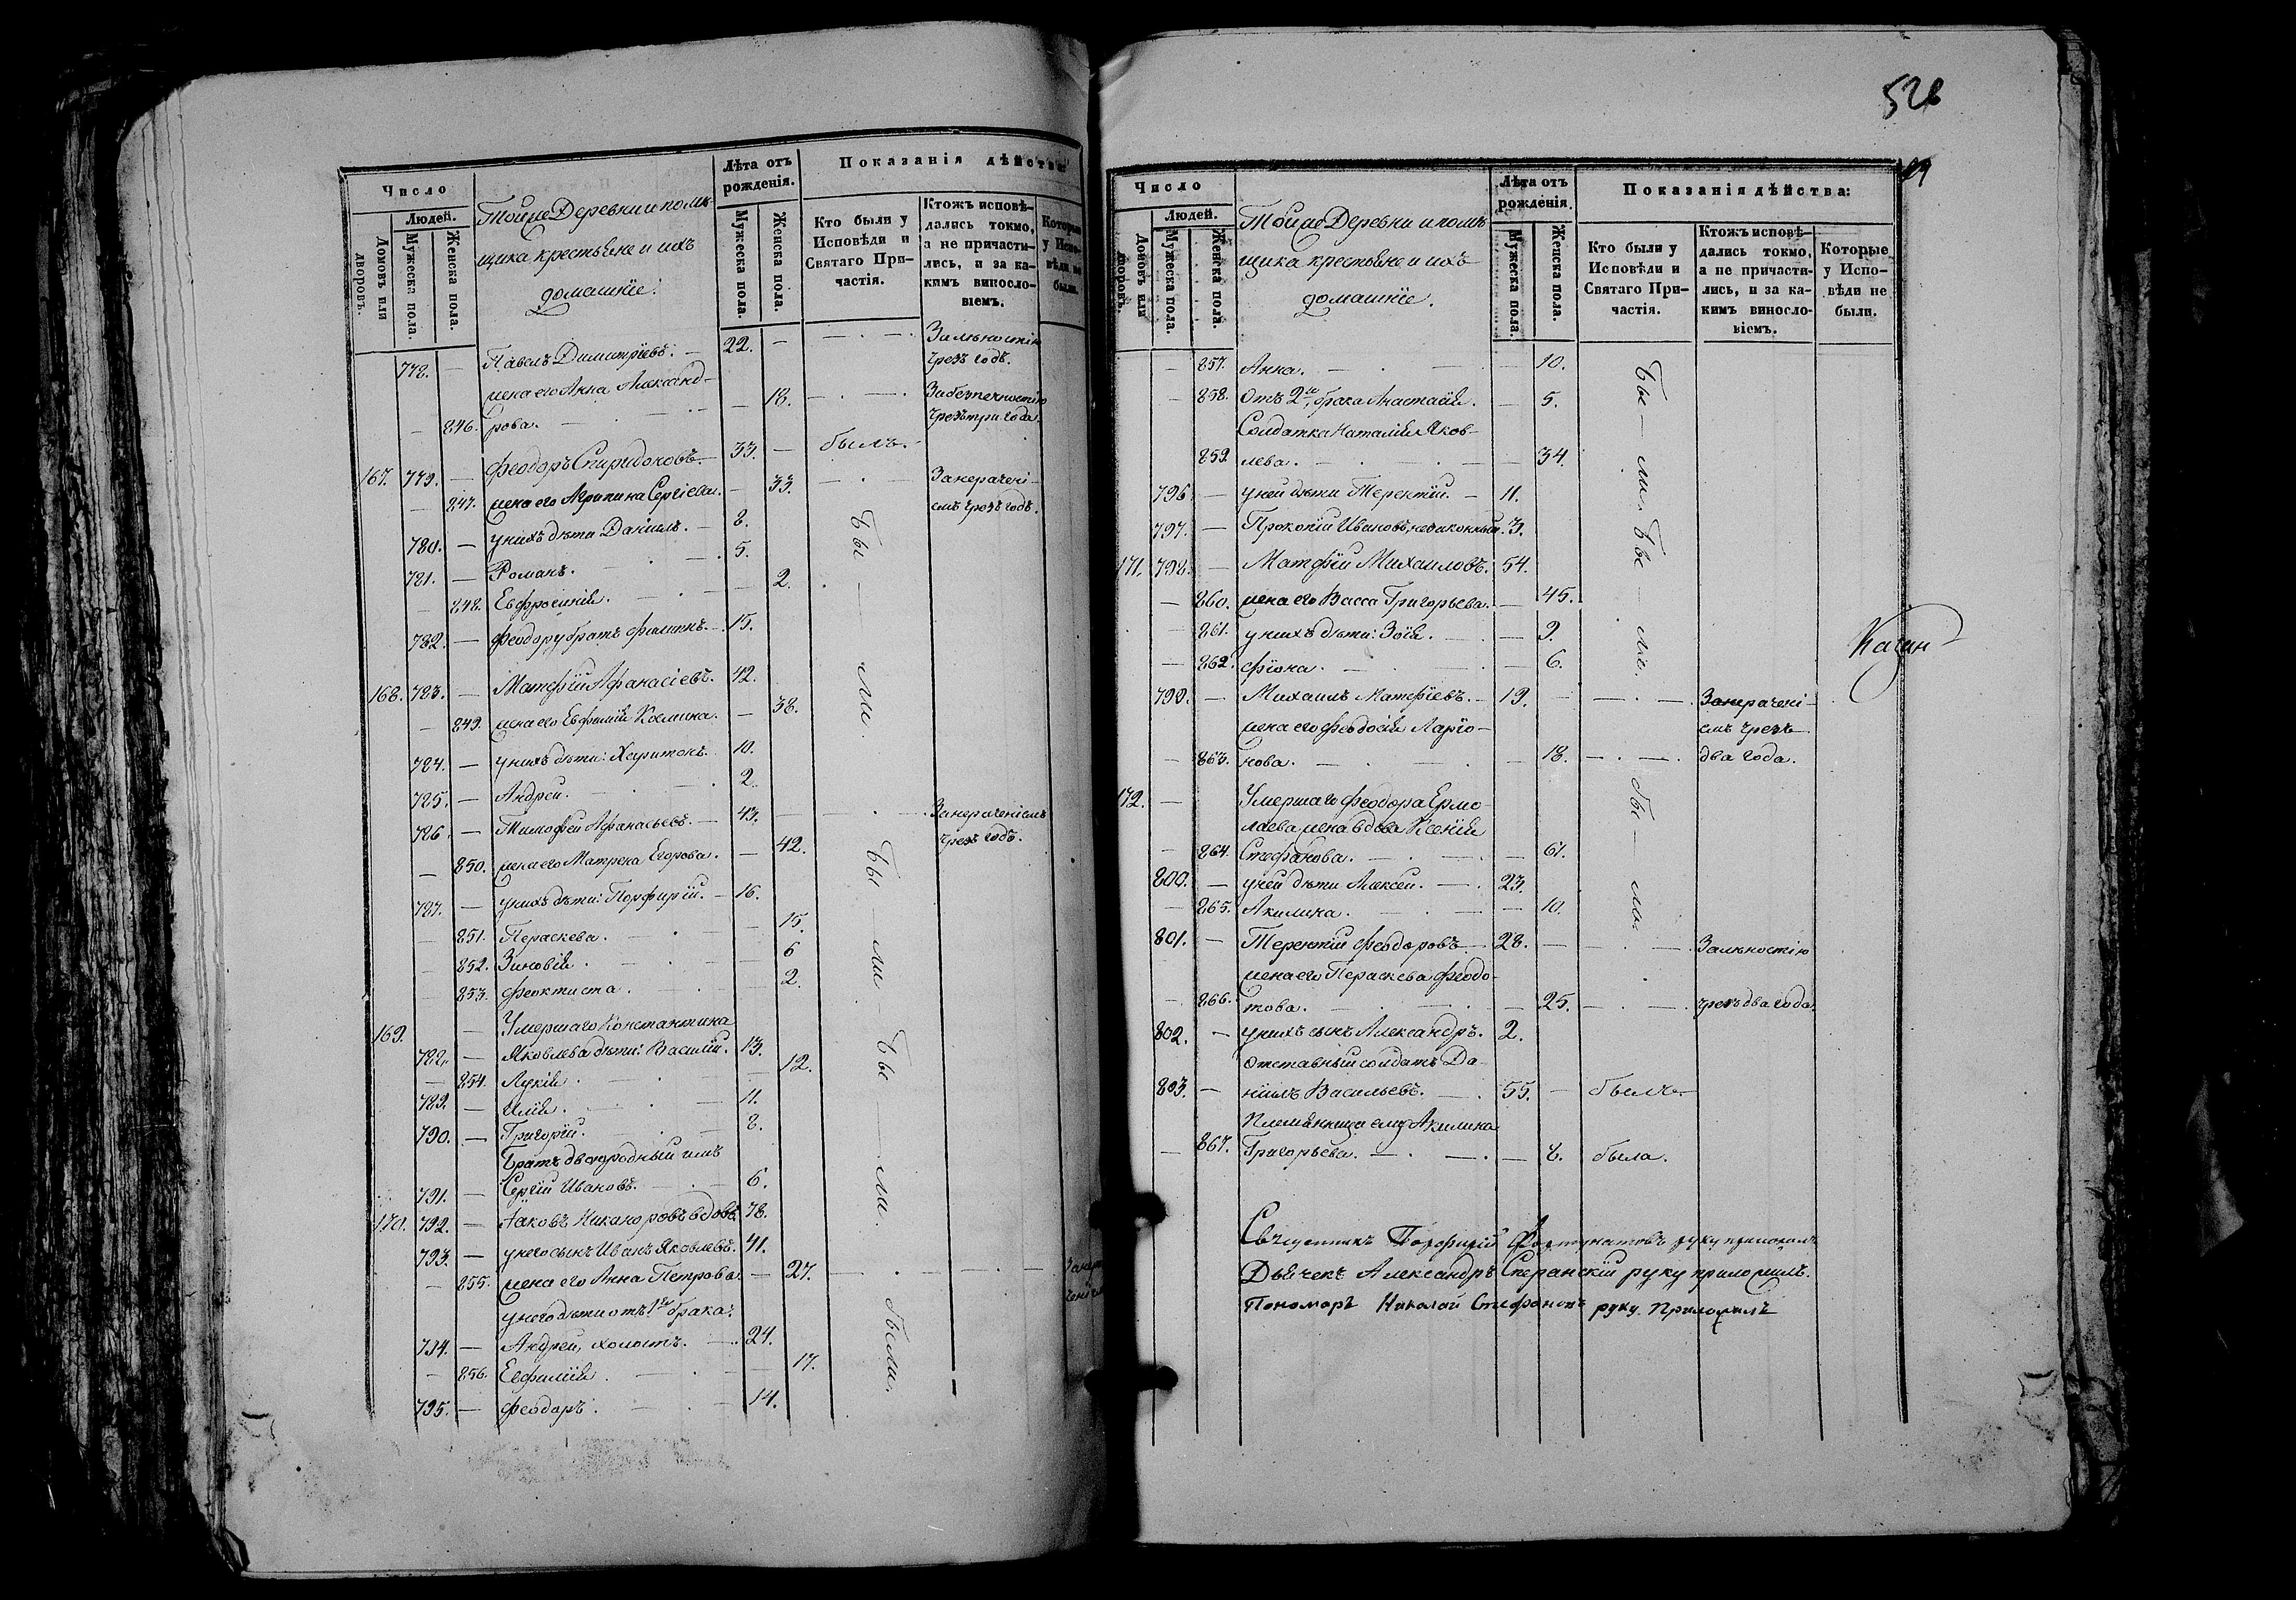 Число
Людей.
Домовъ или дворовъ.
Мужеска пола.
Женска пола.
Тойже Деревни и помѣ-
щика крестьяне и ихъ
домашніе:
Лѣта отъ
рожденія.
Мужеска пола.
Женска пола.
Показанія дѣйства:
Кто были у
Исповѣди и
Святаго При-
частія.
Ктожъ исповѣ-
дались токмо,
а не причасти-
лись, и за ка-
кимъ виносло-
віемъ.
Которые
у Испо-
вѣди не
были.
778. — Павелъ Димитріевъ. — 22. — За лѣностію
чрезъ годъ.
жена его Анна Александ-
— 846. рова. — — 18. За безпечностію
чрезъ три года.
167. 779. — Феодоръ Спиридоновъ. — 33. — былъ.
— 847. жена его Агрипина Сергіева. — 33. За нерачені-
емъ чрезъ годъ.
780. — у нихъ дѣти Даніилъ. — 8. Бы — ли.
781. — Романъ. 5.
— 848. Евфросинія. — 2.
782. — Феодору братъ Филипъ. — 15.
168. 783. — Матфій Афанасіевъ. 42.
— 849. жена его Евфимія Козмина. — 38.
784. — у нихъ дѣти: Харитонъ. 10.
785. — Андрей. 2.
786. — Тимофей Афанасьевъ. — 43. — За нераченіемъ
чрезъ годъ.
— 850. жена его Матрена Егорова. — 42. Бы — ли
787. — у нихъ дѣти: Порфирій. — 16.
— 851. Параскева. — 15.
— 852. Зиновія. — 6
— 853. Феоктиста. — 2.
169. — Умершаго Константина
788. — Яковлева дѣти: Василій. 13. Бы — ли.
— 854. Лукія. — 12.
789. — Илія. — 11.
790. — Григорій. — 8.
Братъ двоюродный имъ
791. — Сергій Ивановъ. — 6.
170. 792. — Іаковъ Никаноровъ вдовъ. 78.
793. — у него сынъ Иванъ Яковлевъ. 41.
— 855. жена его Анна Петрова. — 27. —
у него дѣти отъ 1го брака:
794. — Андрей, холостъ. — 24. были.
— 856. Евфимія. — 17.
795. — Феодоръ. — 14.
526
Число
Людей.
Домовъ или дворовъ.
Мужеска пола.
Женска пола.
Тойже Деревни и помѣ-
щика крестьяне и ихъ
домашніе.
Лѣта отъ
рожденія.
Мужеска пола.
Женска пола.
Показанія дѣйства:
Кто были у
Исповѣди и
Святаго При-
частія.
Ктожъ исповѣ-
дались токмо,
а не причасти-
лись, и за ка-
кимъ виносло-
віемъ.
Которые
у Испо-
вѣди не
были.
— 857. Анна. — 10. Бы — ли.
— 858. Отъ 2го брака Анастасія. — 5.
Солдатка Наталія Яков-
859. лева. — 34.
796. — у ней дѣти Терентій. — 11.
797. — Прокопій Ивановъ, незаконный. 3. Бы — ли.
171. 798. — Матфій Михаиловъ. 54.
— 860. жена его Васса Григорьева. — 45.
— 861. у нихъ дѣти: Зоія. — 9.
— 862. Фіона. — 6.
799. — Михаилъ Матфіевъ. — 19. — За нерачені-
жена его Феодосія Ларіо- емъ чрезъ
— 863. нова. — 18. — два года.
172. — Умершаго Феодора Ермо-
лаева жена вдова Ксенія
— 864. Стефанова. — 61. бы — ли
800. — у ней дѣти Алексей. — 23.
— 865. Акилина. — 10.
801. — Терентій Феодоровъ. — 28. — За лѣностію
жена его Параскева Федо-
— 866. това. — 25. — чрезъ два года.
802. — у нихъ сынъ Александръ. 2.
Отставный солдатъ Да-
803. — ніилъ Васильевъ. — 55. — былъ.
Племянница ему Акилина
— 867. Григорьева. — 8. была.
Священникъ Порфирій Фортунатовъ руку приложилъ
Дьячекъ Александръ Сперанскій руку приложилъ.
Пономарь Николай Стефановъ руку приложилъ